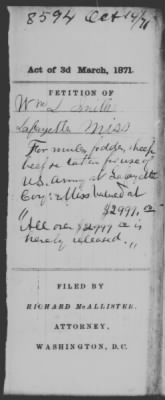 8594 Oct 14/71
Act of 3d March, 1871.
PETITION OF
Wm L Smith
Lafayette Miss
For mules, fodder, sheep,
beef &c taken for use of
U.S. army at Lafayette
Co,, Miss valued at
$2999.
"All over $2999 is
hereby released."
FILED BY
RICHARD McALLISTER,
ATTORNEY,
WASHINGTON, D.C.